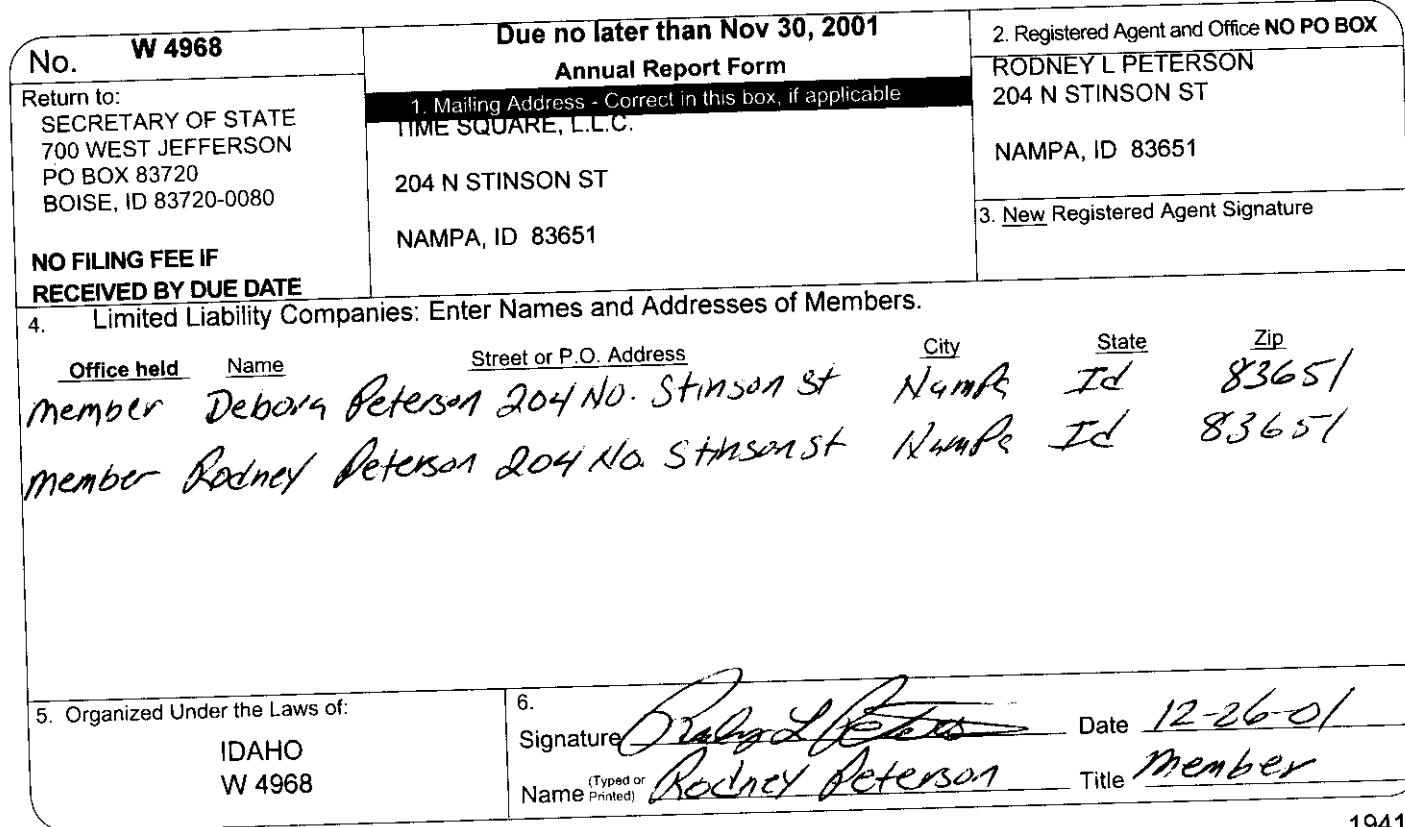 No. W 4968
Return to:
SECRETARY OF STATE
700 WEST JEFFERSON
PO BOX 83720
BOISE, ID 83720-0080
NO FILING FEE IF
RECEIVED BY DUE DATE
Due no later than Nov 30, 2001
Annual Report Form
1. Mailing Address - Correct in this box, if applicable
TIME SQUARE, L.L.C.
204 N STINSON ST
NAMPA, ID 83651
2. Registered Agent and Office NO PO BOX
RODNEY L PETERSON
204 N STINSON ST
NAMPA, ID 83651
3. New Registered Agent Signature
4. Limited Liability Companies: Enter Names and Addresses of Members.
Office held Name Street or P.O. Address City State Zip
member Debora Peterson 204 No. Stinson St Nampa Id 83651
member Rodney Peterson 204 No. Stinson St Nampa Id 83651
5. Organized Under the Laws of:
IDAHO
W 4968
6.
Signature Rodney L Peterson Date 12-26-01
Name (Typed or Printed) Rodney Peterson Title Member
1941